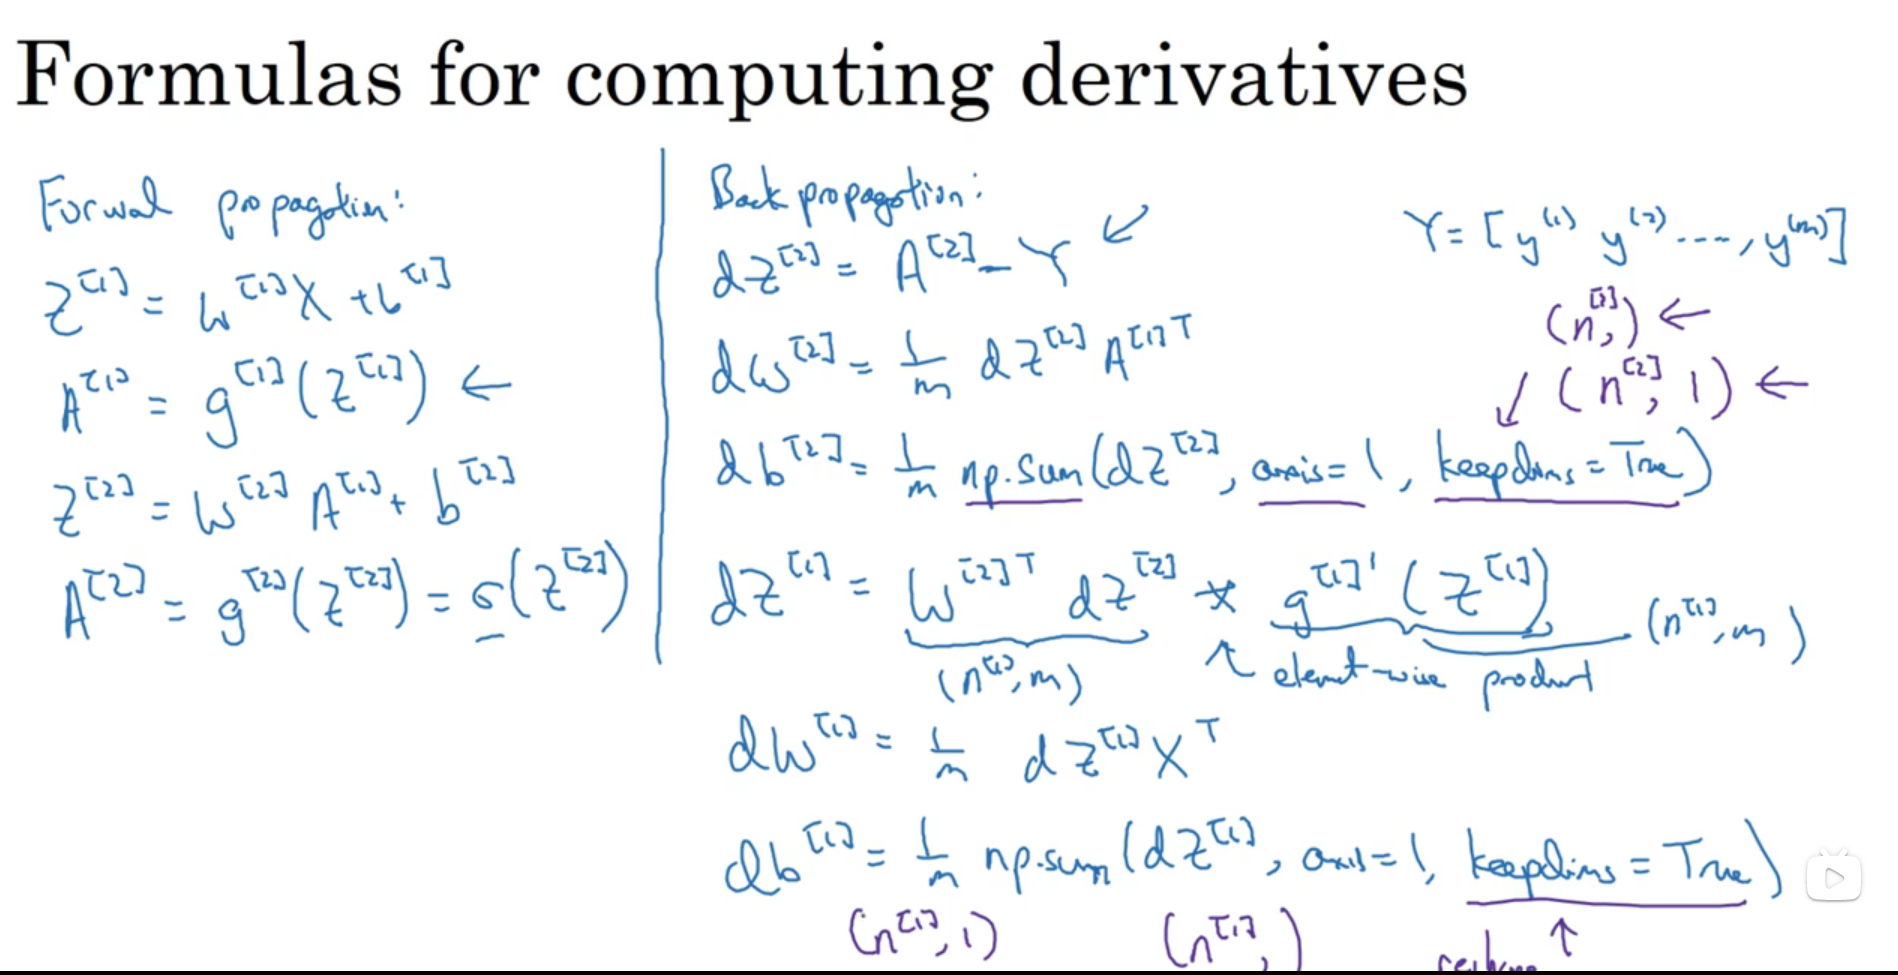 Formulas for computing derivatives
Forwal propagation:
Z^[1] = W^[1] X + b^[1]
A^[1] = g^[1](Z^[1]) ←
Z^[2] = W^[2] A^[1] + b^[2]
A^[2] = g^[2](Z^[2]) = σ(Z^[2])
Back propagation:
dZ^[2] = A^[2] - Y ↙
dW^[2] = 1/m dZ^[2] A^[1]T
db^[2] = 1/m np.sum(dZ^[2], axis=1, keepdims=True)
dZ^[1] = W^[2]T dZ^[2] * g^[1]'(Z^[1])
(n^[1], m) ↖ element-wise product (n^[1], m)
dW^[1] = 1/m dZ^[1] X^T
db^[1] = 1/m np.sum(dZ^[1], axis=1, keepdims=True)
(n^[1], 1) (n^[1],) ↑
Y = [y^(1) y^(2) ...., y^(m)]
(n^[2],) ←
↓ (n^[2], 1) ←